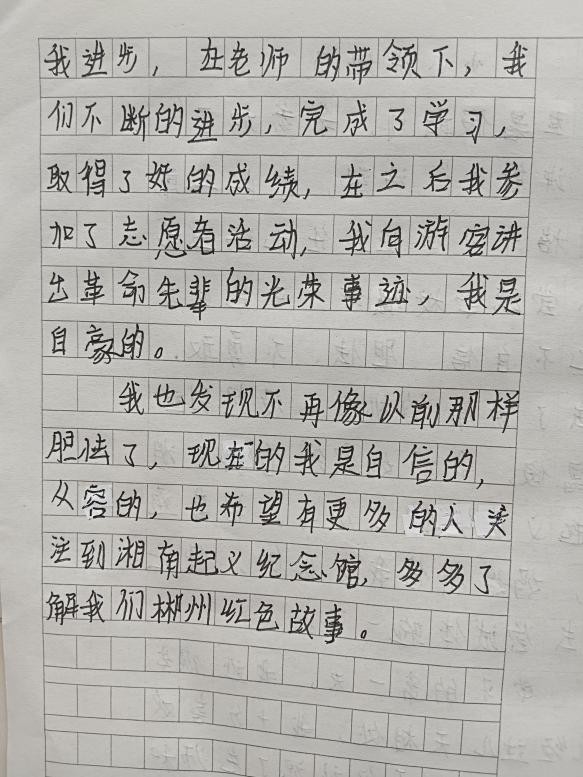 我进步，在老师的带领下，我
们不断的进步，完成了学习，
取得了好的成绩，在之后我参
加了志愿者活动，我向游客讲
出革命先辈的光荣事迹，我是
自豪的。
我也发现不再像以前那样
胆怯了，现在的我是自信的，
从容的，也希望有更多的人关
注到湘南起义纪念馆，多多了
解我们郴州红色故事。